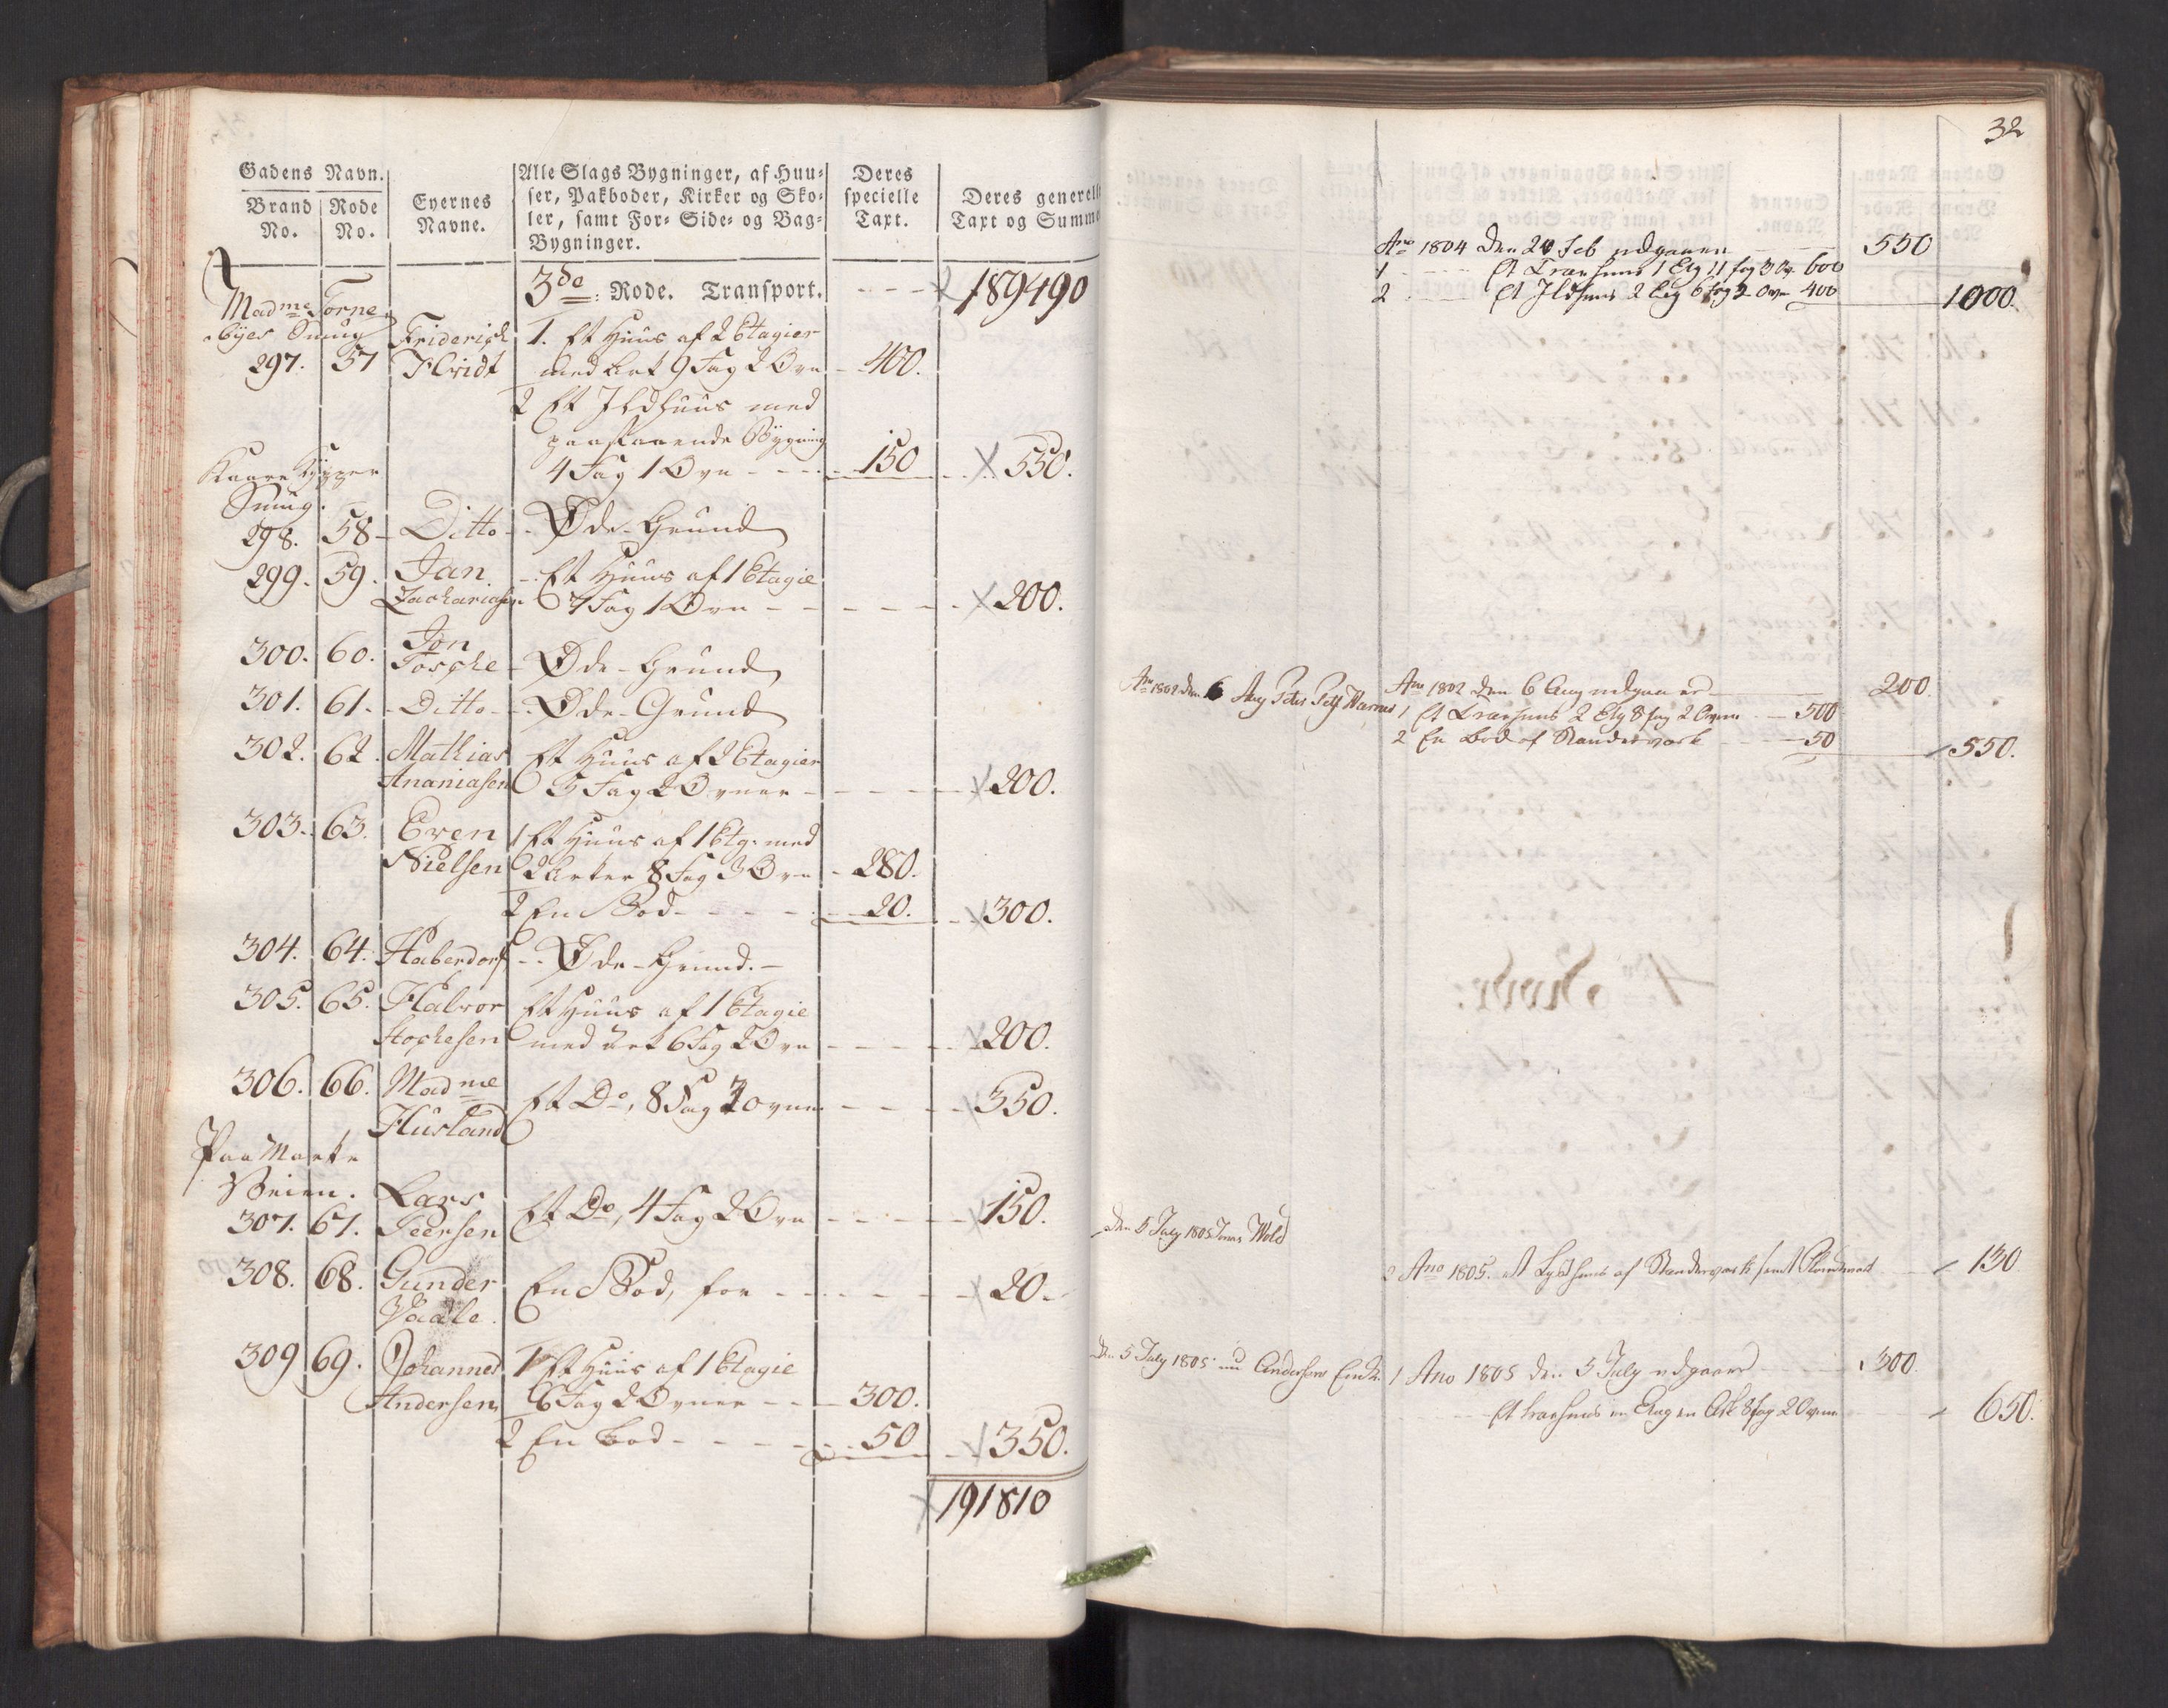 Gadens Navn.
Brand No.
Rode No.
Eyernes Navne.
Alle Slags Bygninger, af Huu-
ser, Pakboder, Kirker og Sko-
ler, samt For- Side- og Bag-
Bygninger.
Deres specielle Taxt.
Deres generelle
Taxt og Summa
3de Rode. Transport. - - - 189490
Madme Torne
byes Smug
297. 57 Friderich 1. Et Huus af 2 Etagier
med Ark 9 Fag 2 Ovn - 400.
2 Et Ildhuus med
paastaaende Bygning
4 Fag 1 Ovn - - - 150 550.
Smug.
298. 58 - Ditto - - Øde-Grund
299. 59. Jan - Et Huus af 1 Etagie
Zachariasen 7 Fag 1 Ovn - - - 200.
300. 60. Jon
Tosche - Øde-Grund
301. 61. - Ditto - - Øde-Grund
302. 62. Mathias Et Huus af 2 Etagier
Ananiasen 5 Fag 2 Ovner - - - 200.
303. 63. Even 1 Et Huus af 1 Etg: med
Nielsen 2 Arker 8 Fag 3 Ovn - 280.
2 En Bod - - - 20. 300.
304. 64. Haberdorf - - Øde-Grund. -
305. 65. Halvor Et Huus af 1 Etagie
med Ark 6 Fag 2 Ovn - - - 200.
306. 66. Madme
Et Do, 8 Fag 3 Ovne - - - 350.
Husland
Paa Marke
Veien. Lars
307. 67. Peersen Et Do, 4 Fag 2 Ovn - - - 150.
308. 68. Gunder En Bod, for - - - 20.
Vaale.
309 69. Johannes 1 Et Huus af 1 Etagie
Andersen 6 Fag 2 Ovner - - 300.
2 En Bod - - - 50 350.
191810
32
Ano 1804 Den 24 Feb udgaaer 550
1 - - Et Træehuus 1 Etg 11 fag 3 Ov. 600
2 - - Et Ildhuus 2 Etg 6 fag 2 Ovn 400 1000.
Ano 1802 den 6 Aug Peter
Ano 1802 den 6 Aug udgaaer 200.
1 Et Træehuus 2 Etg 8 fag 2 Ovne - 500
2 En Bod af Standerværk - 50 550.
Den 5 July 1805 Jonas Wold
2 Ano 1805. et Lysthuus af Standerværk samt 130
Den 5 July 1805 nu Andersens Enke
1 Ano 1805 den 5 July udgaaer 300.
Et træehuus en Etag en Ark 8 fag 2 Ovne 650.